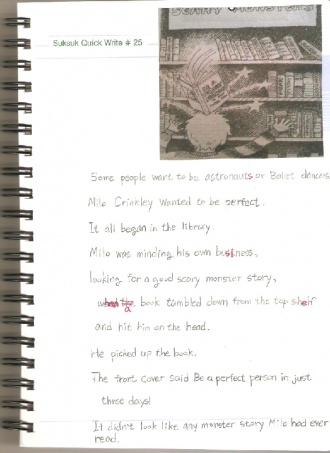 SCARY MONSTERS
Suksuk Quick Write # 25
Some people want to be astronauts or Ballet dancers.
Milo Crinkley wanted to be perfect.
It all began in the library.
Milo was minding his own business,
looking for a good scary monster story,
when a book tumbled down from the top shelf
and hit him on the head.
He picked up the book.
The front cover said Be a perfect person in just
three days!
It didn't look like any monster story Milo had ever
read.